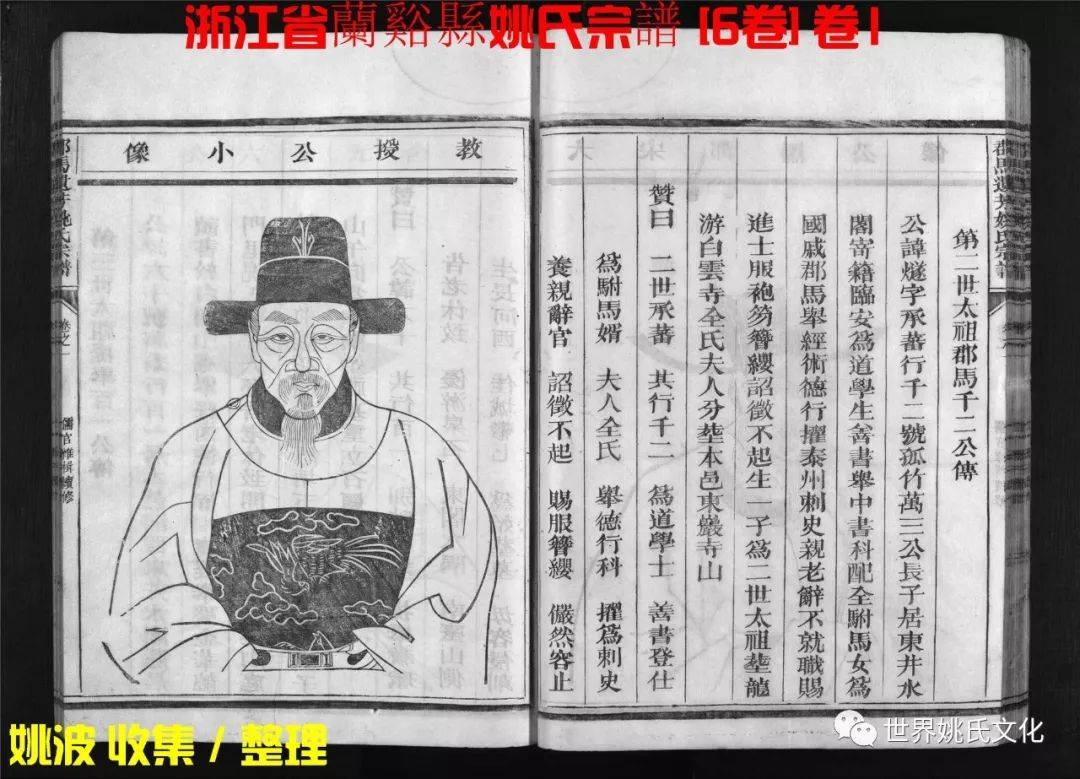 浙江省蘭谿縣姚氏宗譜 [6卷] 卷1
第二世太祖郡馬千二公傳
公諱燧字承蕃行千二號孤竹萬三公長子居東井水
閣寄籍臨安為道學生善書舉中書科配全駙馬女為
國戚郡馬舉經術德行擢泰州刺史親老辭不就職賜
進士服袍笏簪纓詔徵不起生一子為二世太祖塟龍
游白雲寺全氏夫人分塟本邑東巖寺山
贊曰 二世承蕃 其行千二 為道學士 善書登仕
為駙馬婿 夫人全氏 舉德行科 擢為刺史
養親辭官 詔徵不起 賜服簪纓 儼然容止
教授公小像
卷之一
姚波 收集 / 整理
世界姚氏文化